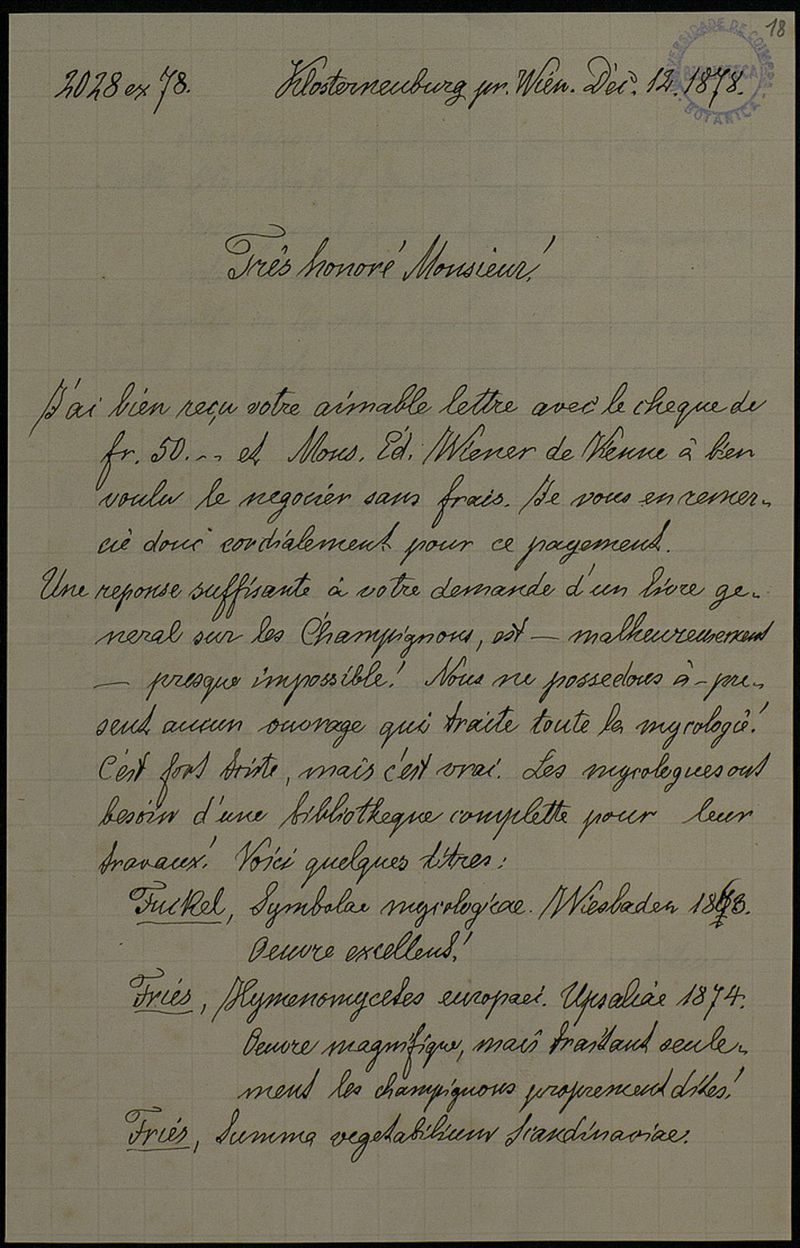 18
UNIVERSIDADE DE COIMBRA
BIBLIOTECA
BOTANICA
2028 ex 78. Klosterneuburg pr. Wien. Déc. 12. 1878.
Très honoré Monsieur!
J'ai bien reçu votre aimable lettre avec le cheque de
fr. 50.-- et Mons. Ed. Wiener de Vienne à bien
voulu le negocier sans frais. Je vous en remer-
cie donc cordialement pour ce payement.
Une reponse suffisante à votre demande d'un livre ge-
neral sur les Champignons, est — malheureusement
— presque impossible! Nous ne possedons à-pre-
sent aucun ouvrage qui traite toute la mycologie!
C'est fort triste, mais c'est vrai. Les mycologues ont
besoin d'une bibliotheque complette pour leur
travaux! Voici quelques titres:
Fuckel, Symbolae mycologicae. Wiesbaden 1873.
Oeuvre excellent!
Fries, Hymenomycetes europaei. Upsaliae 1874.
Oeuvre magnifique, mais traitant seule-
ment les champignons proprement dites!
Fries, Summa vegetabilium Scandinaviae.